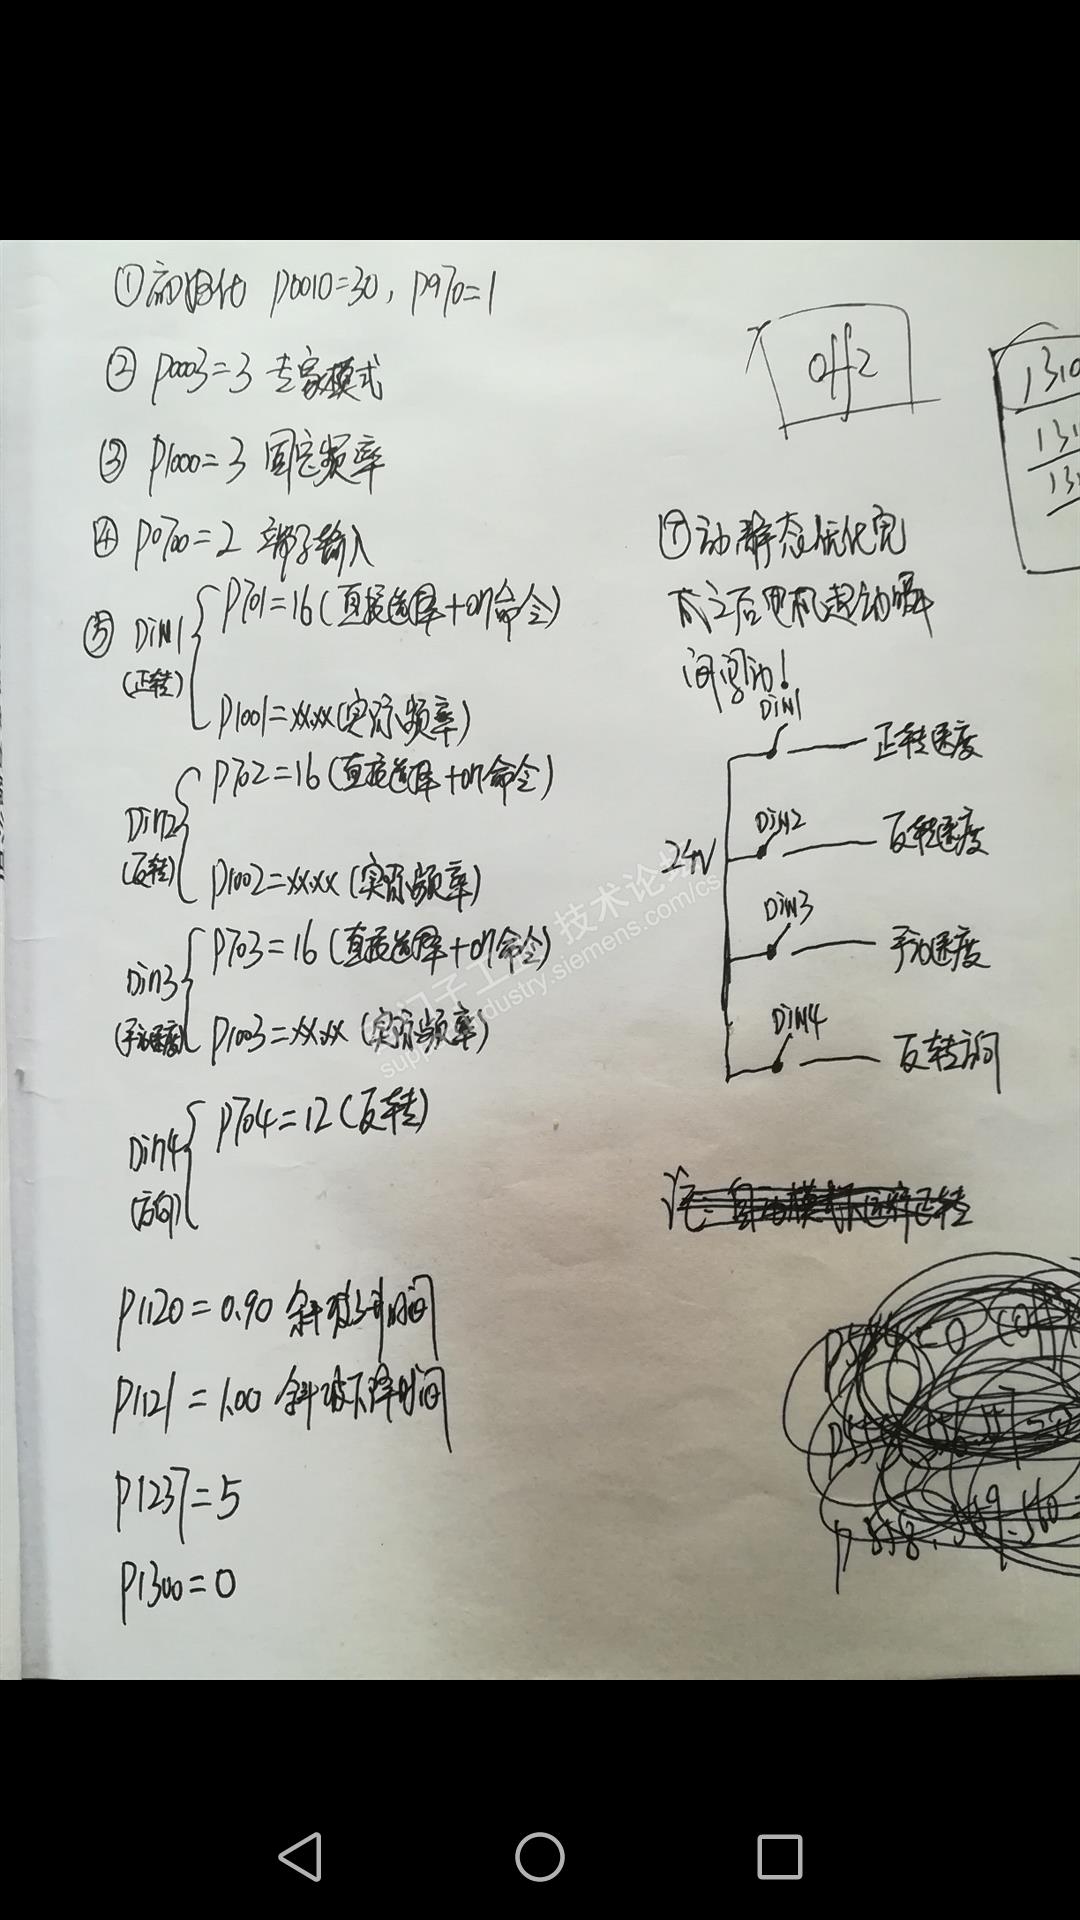 ①初始化 P0010=30, P970=1
② P0003=3 专家模式
③ P1000=3 固定频率
④ P0700=2 端子输入
⑤ DiN1 (正转)
P701=16(直接选择+on命令)
P1001=xx.xx(实际频率)
Din2 (反转)
P702=16(直接选择+on命令)
P1002=xx.xx(实际频率)
Din3 (手动速度)
P703=16(直接选择+on命令)
P1003=xx.xx(实际频率)
Din4 (方向)
P704=12(反转)
P1120=0.90 斜坡上升时间
P1121=1.00 斜坡下降时间
P1237=5
P1300=0
off2
1310
131
13
⑦动静态优化完
之后电机起动瞬
间 动!
24V
DiN1 正转速度
DiN2 反转速度
DiN3 手动速度
DiN4 反转方向
技术论坛
support.industry.siemens.com/cs